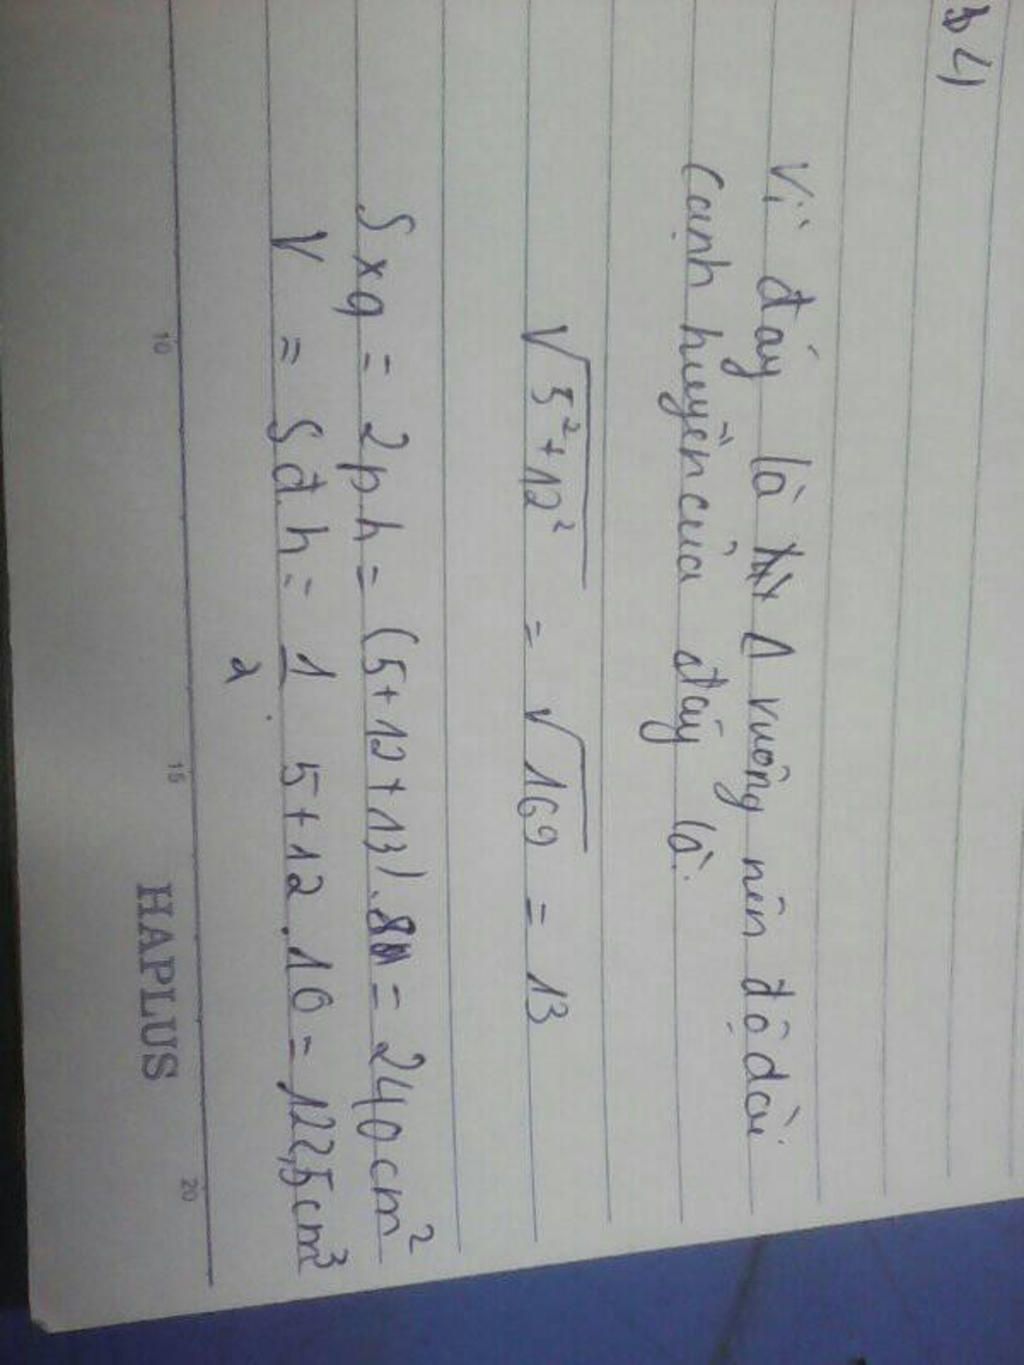 B4)
Vì đáy là Δ vuông nên độ dài
cạnh huyền của đáy là:
√5²+12² = √169 = 13
Sxq = 2ph = (5+12+13).8 = 240cm²
V = Sđh = 1/2 5+12.10 = 122,5cm³
10 15 20
HAPLUS